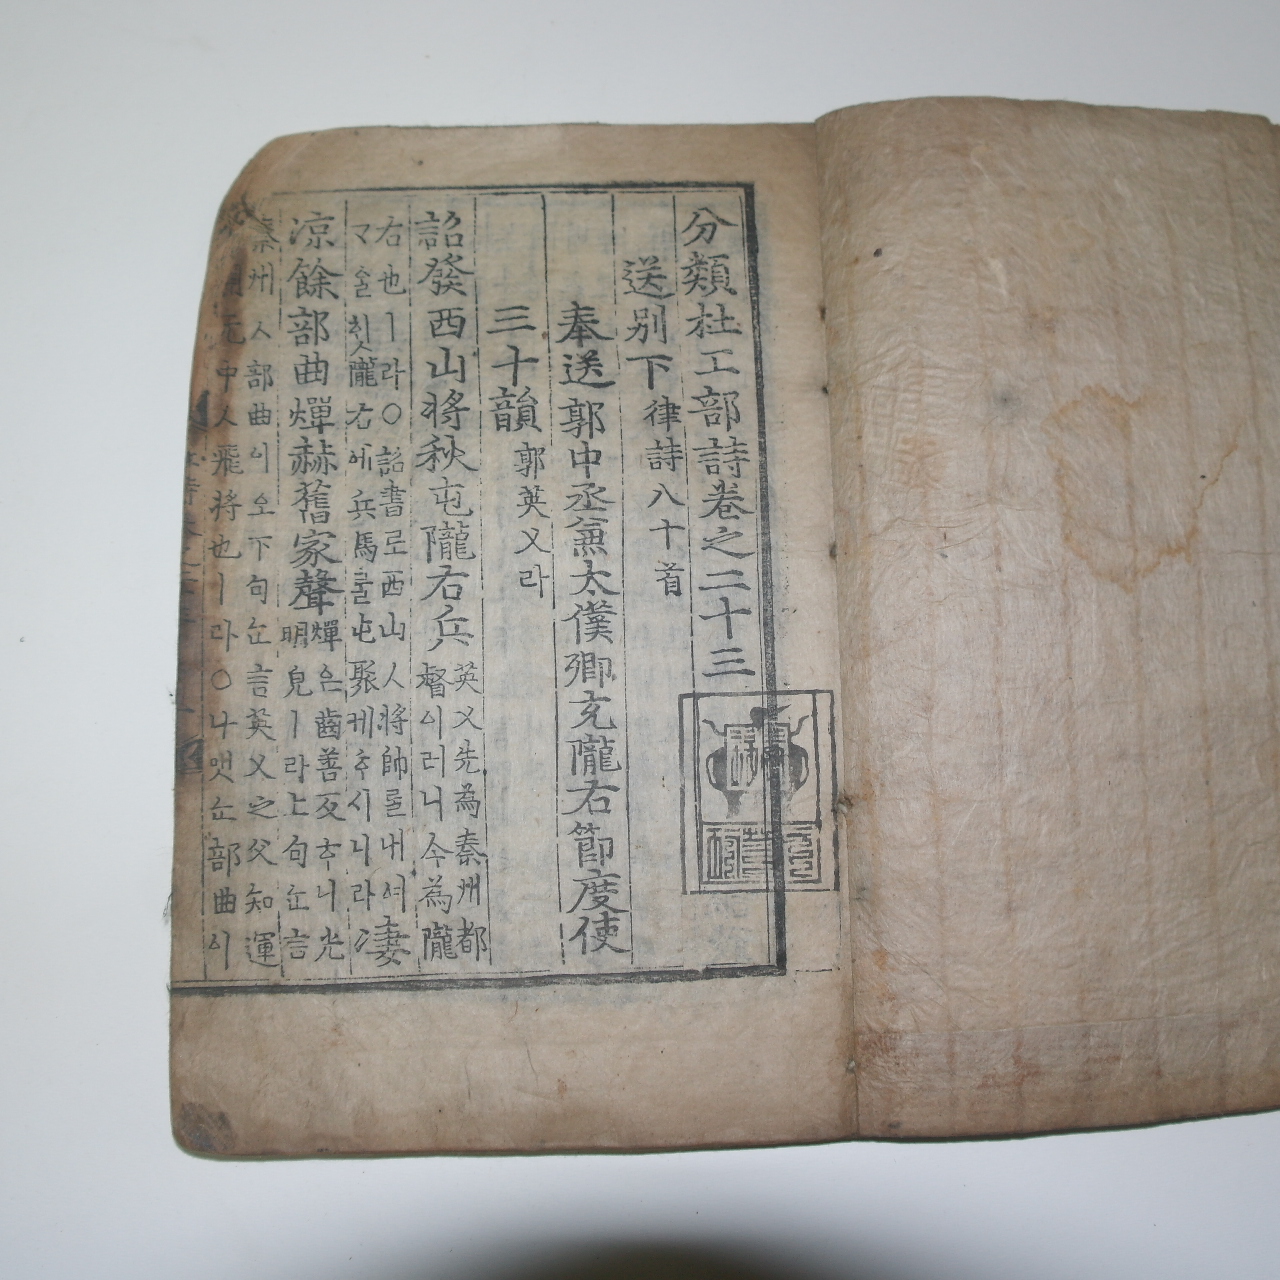 分類杜工部詩卷之二十三
送別下 律詩八十首
奉送郭中丞兼太僕卿充隴右節度使
三十韻 郭英乂라
詔發西山將秋屯隴右兵 英乂先為秦州都
督이러니今為隴
右也ㅣ라○詔書로西山人將帥를내셔
ᄀᆞᅀᆞᆯ힛隴右에兵馬를屯聚케ᄒᆞ시니라 凄
凉餘部曲燀赫舊家聲 燀은齒善反ᄒᆞ니光
明皃ㅣ라上句는言
秦州ㅅ部曲이오下句는言英乂之父知運
中人飛將也ㅣ라○나맷는部曲이